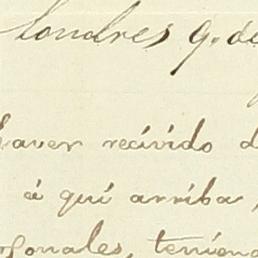 Londres 9. de
haver recivido d
á quí arriba,
rsonales, teniend